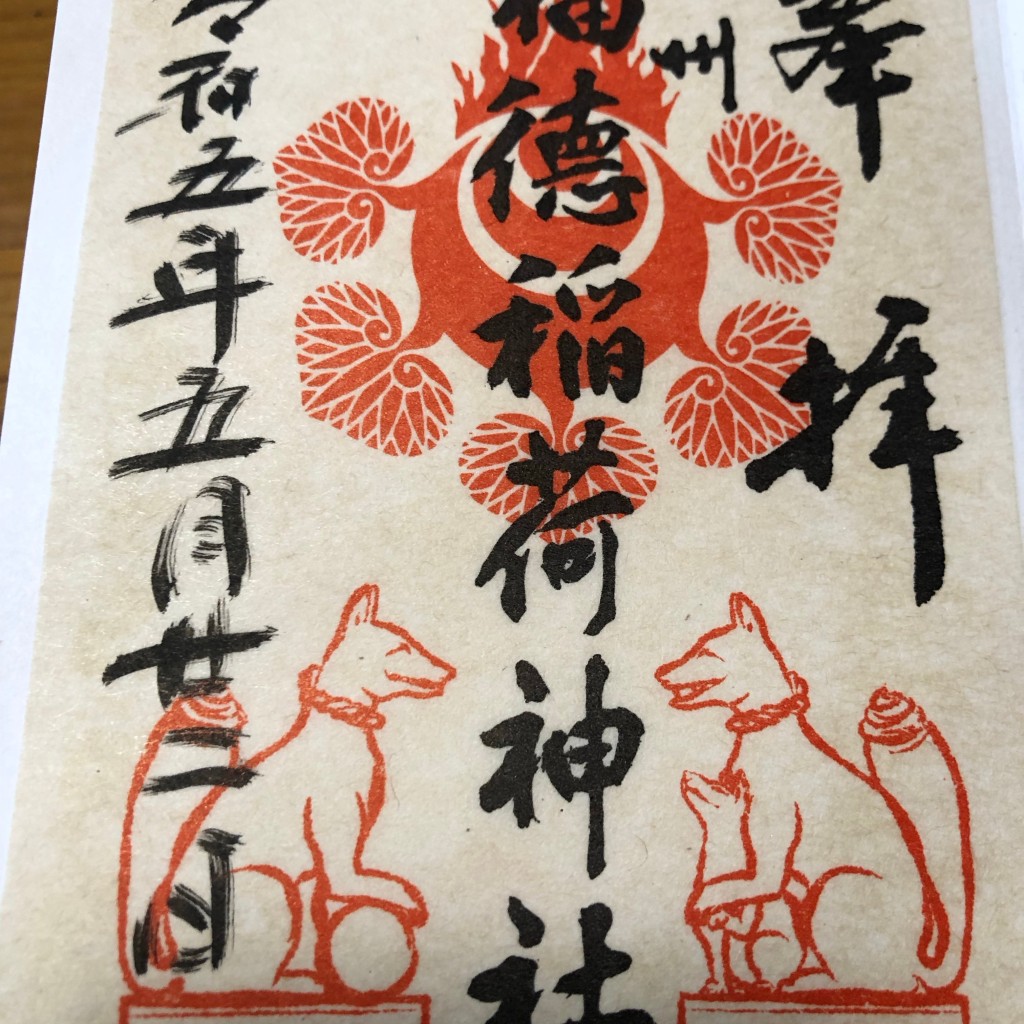 奉拝
州
福德稲荷神社
令和五年五月廿二日